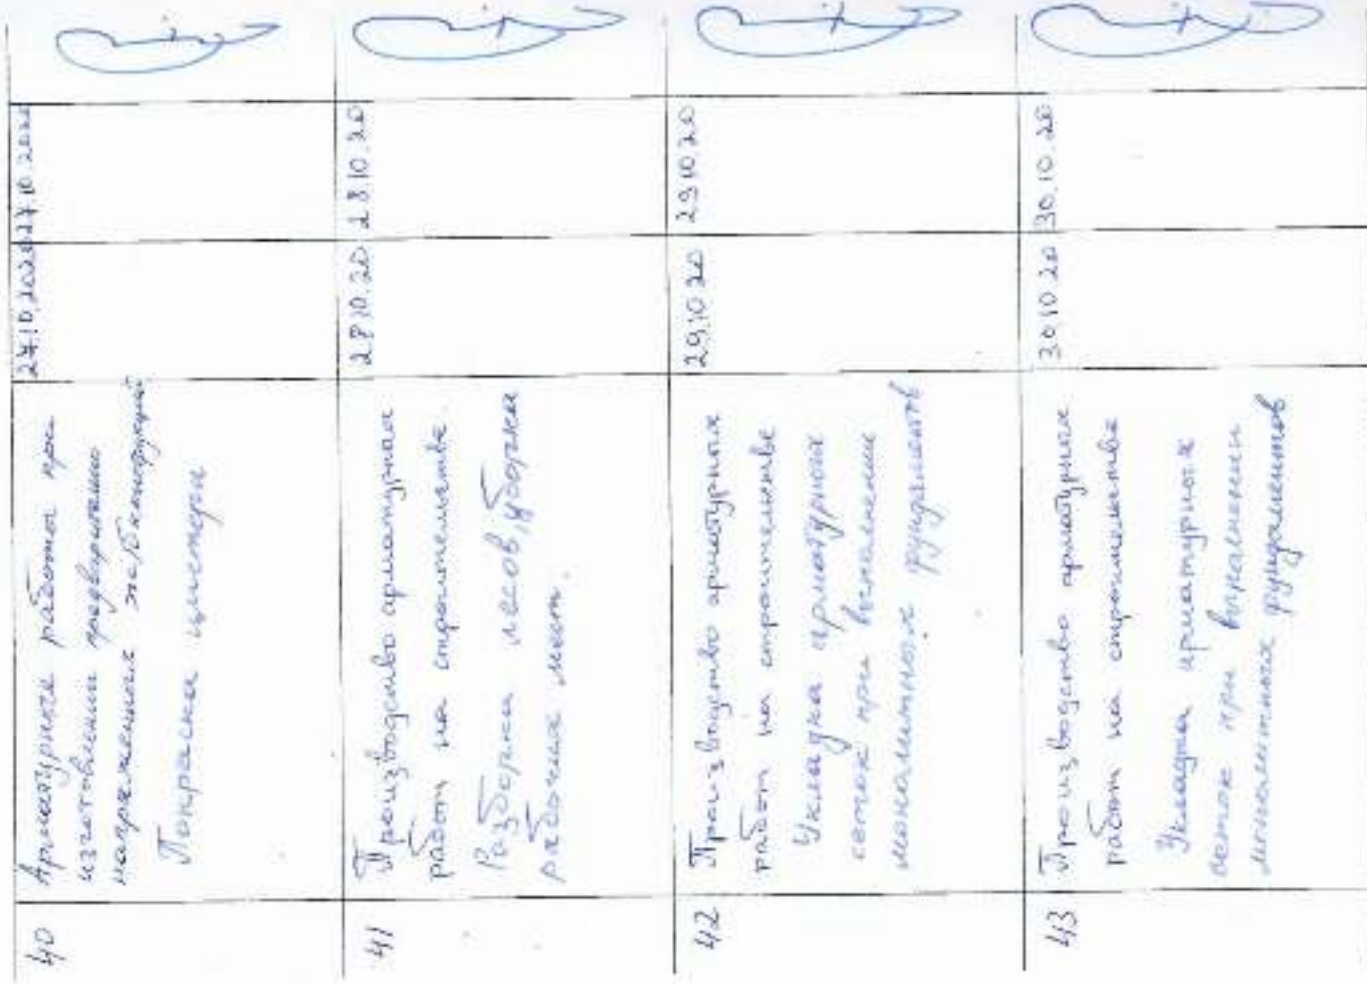 40
Арматурные работы при
изготовлении предварительно
напряженных ж/б конструкций
Покраска цистерн
27.10.2020
27.10.2020
41
Производство арматурных
работ на строительстве
Разборка лесов, уборка
рабочих мест.
28.10.20
28.10.20
42
Производство арматурных
работ на строительстве
Укладка арматурных
сеток при выполнении
монолитных фундаментов
29.10.20
29.10.20
43
Производство арматурных
работ на строительстве
Укладка арматурных
сеток при выполнении
монолитных фундаментов
30.10.20
30.10.20